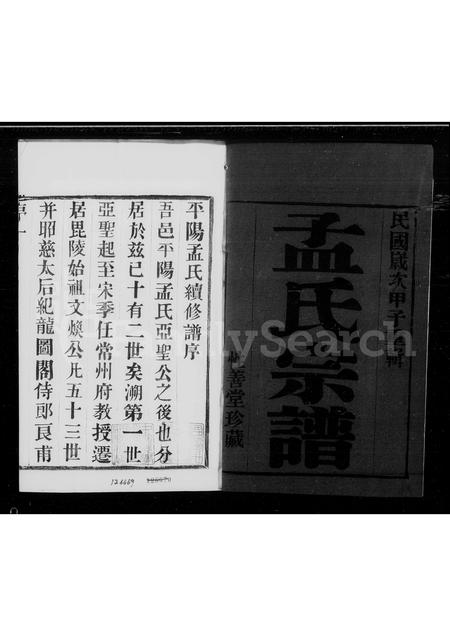 民國歲次甲子
孟氏宗譜
善堂珍藏
平陽孟氏續修譜序
吾邑平陽孟氏亞聖公之後也分
居於兹已十有二世矣溯第一世
亞聖起至宋季任常州府教授遷
居毘陵始祖文煥公凡五十三世
并昭慈太后紀龍圖閣侍郎良甫
序一
126669
FamilySearch